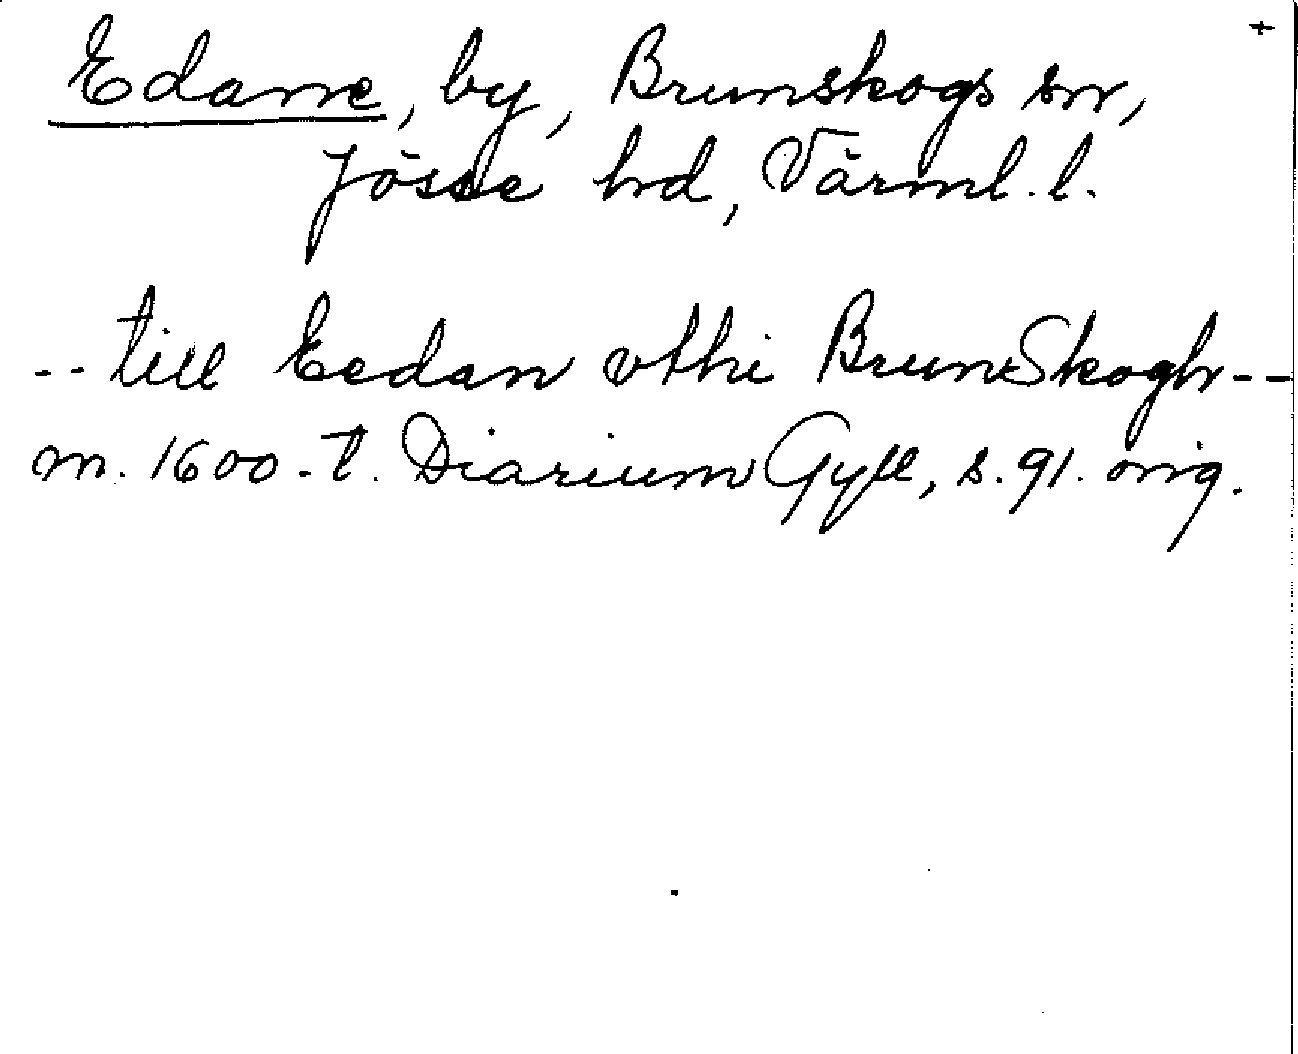 +
Edane, by, Brunskogs sn,
Jösse hd, Värml. l.
-- till Eedan vthi BrunSkogh--
m. 1600-t. Diarium Gyll, s. 91. orig.